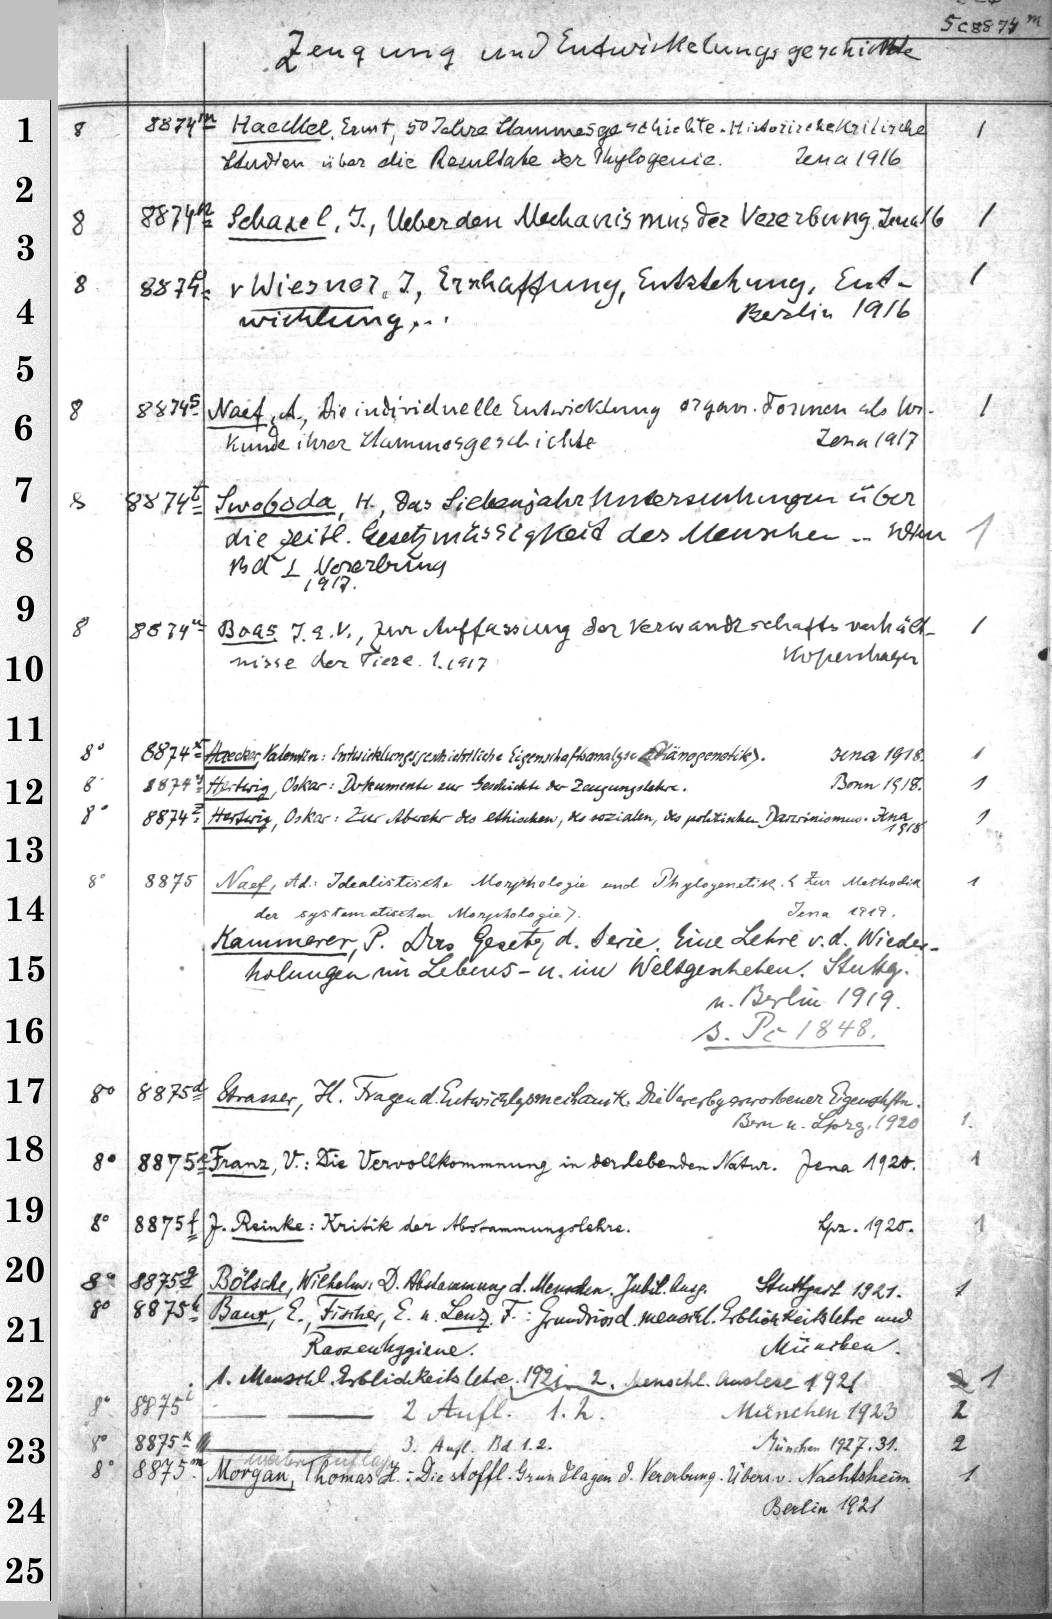 5c8874 m
Zeugung und Entwickelungsgeschichte
1 8 8874m Haeckel, Ernst, 50 Jahre Stammesgeschichte. Historische Kritische 1
Studien über die Resultate der Phylogenie. Jena 1916
2
8 8874n Schaxel, J., Ueber den Mechanismus der Vererbung. Jena 16 1
3
8 8874o v Wiesner, J., Erschaffung, Entstehung, Ent- 1
4 wicklung, .. Berlin 1916
5
8 8874s Naef, A., Die individuelle Entwicklung organ. Formen als Ur- 1
6 kunde ihrer Stammesgeschichte Jena 1917
7 8 8874t Swoboda, H., Das Siebenjahr, Untersuchungen über
8 die zeitl. Gesetzmässigkeit des Menschen .. Wien 1
Bd 1 Vererbung
1917.
9
8 8874u Boas, J. E. V., Zur Auffassung der Verwandtschaftsverhält- 1
10 nisse der Tiere. 1. 1917 Kopenhagen
11
8° 8874x Haecker, Valentin: Entwicklungsgeschichtliche Eigenschaftsanalyse (Phänogenetik). Jena 1918. 1
12 8° 8874y Hertwig, Oskar: Dokumente zur Geschichte der Zeugungslehre. Bonn 1918. 1
8° 8874z Hertwig, Oskar: Zur Abwehr des ethischen, des sozialen, des politischen Darwinismus. Jena 1
1918
13
8° 8875 Naef, Ad.: Idealistische Morphologie und Phylogenetik. < Zur Methodik 1
14 der systematischen Morphologie>. Jena 1919.
Kammerer, P. Das Gesetz d. Serie. Eine Lehre v. d. Wieder-
15 holungen im Lebens- u. im Weltgeschehen. Stuttg.
u. Berlin 1919.
16 s. Pc 1848.
17 8° 8875d Strasser, H. Fragen d. Entwicklgsmechanik. Die Vererbg erworbener Eigenschftn.
Bern u. Lpzg. 1920 1.
18 8° 8875e Franz, V.: Die Vervollkommnung in der lebenden Natur. Jena 1920. 1
19 8° 8875f J. Reinke: Kritik der Abstammungslehre. Lpz. 1920. 1
20 8° 8875g Bölsche, Wilhelm: D. Abstammung d. Menschen. Jubil. Ausg. Stuttgart 1921. 1
8° 8875h Baur, E., Fischer, E. u. Lenz, F.: Grundriss d. menschl. Erblichkeitslehre und
21 Rassenhygiene. München.
22 1. Menschl. Erblichkeitslehre. 1921. 2. Menschl. Auslese 1921 1
8° 8875i — — 2 Aufl. 1. 2. München 1923 2
23 8° 8875k — — 3. Aufl. Bd 1. 2. München 1927. 31. 2
8° 8875m Morgan, Thomas H.: Die stoffl. Grundlagen d. Vererbung. Übers. v. Nachtsheim. 1
24 Berlin 1921
25